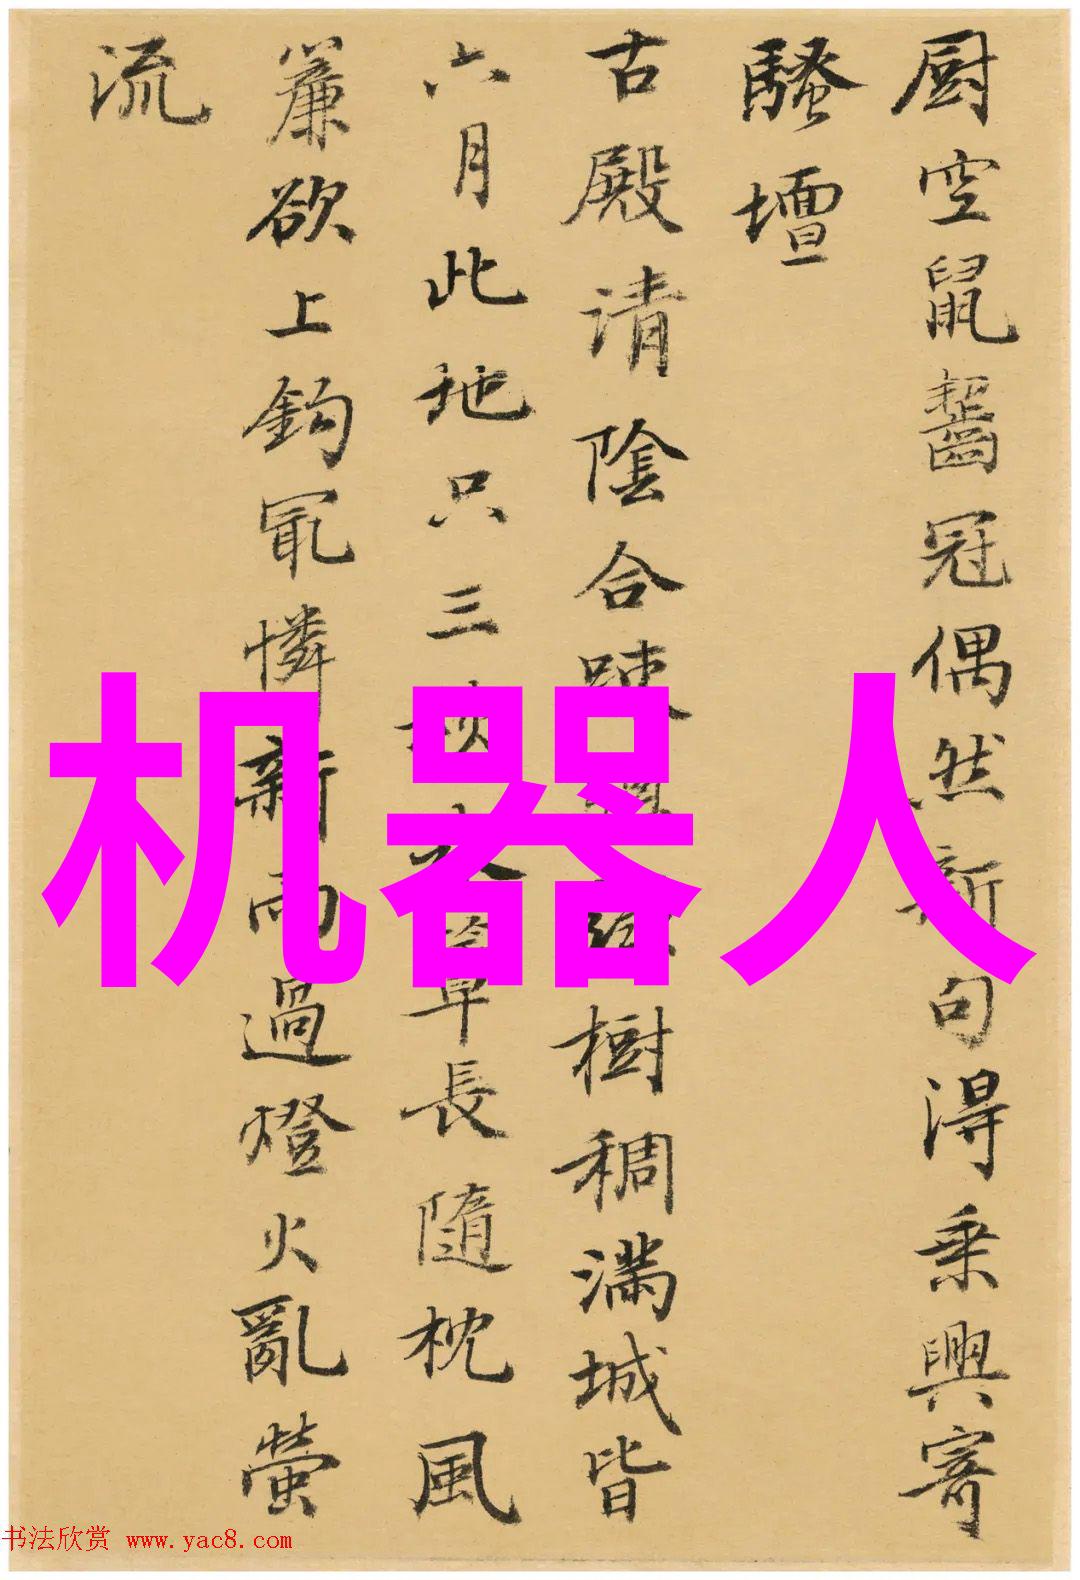 厨空鼠齧冠偶然新句得乘興寄
騷壇
古殿请陰合疎樹稠满城皆
六月此地只三秋草長隨枕風
簾欲上鈎冣憐新雨過燈火亂螢
流
机器人
书法欣赏 www.yac8.com